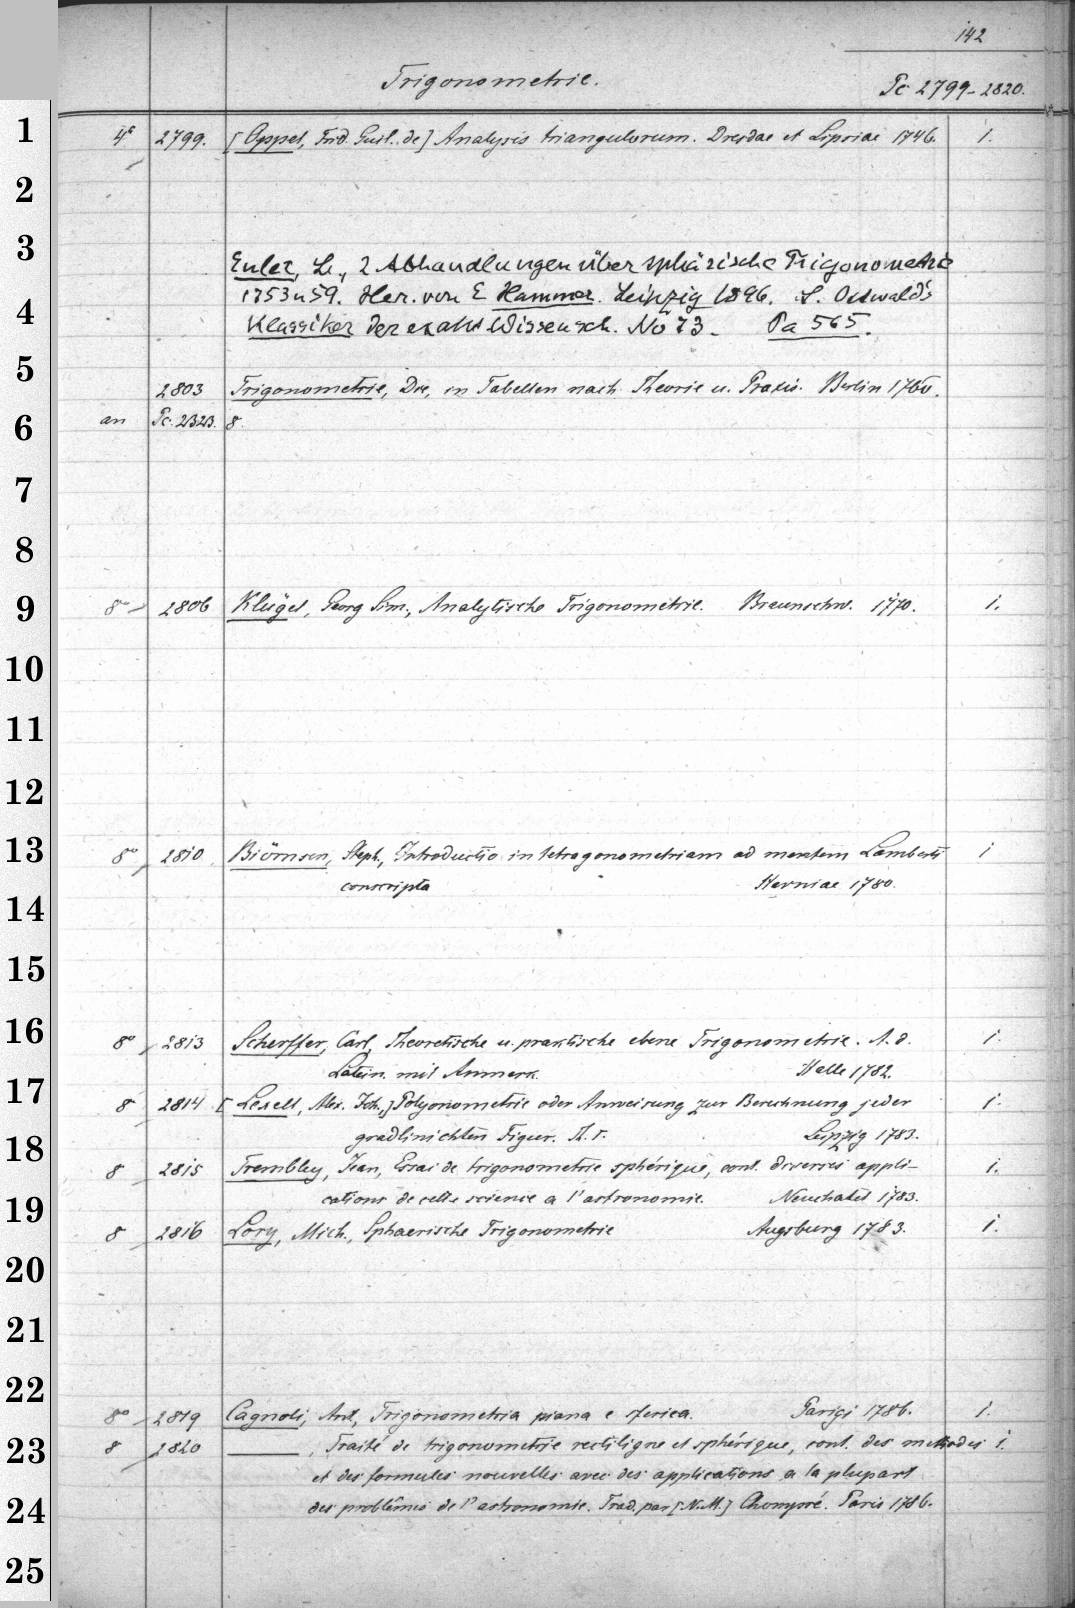 142
Trigonometrie.
Pc 2799-2820.
1
4° 2799. [Oppel, Frid. Guil. de] Analysis triangulorum. Dresdae et Lipsiae 1746. 1.
2
3
Euler, L., 2 Abhandlungen über sphärische Trigonometrie
1753 u 59. Her. von E Hammer. Leipzig 1896. S. Ostwald's
4
Klassiker der exakt Wissensch. No 73. Pa 565.
5
2803 Trigonometrie, Die, in Tabellen nach Theorie u. Praxis. Berlin 1760.
6
an Pc. 2323. 8.
7
8
9
8° 2806 Klügel, Georg Sim., Analytische Trigonometrie. Braunschw. 1770. 1.
10
11
12
13
8° 2810 Biörnsen, Steph., Introductio in tetragonometriam ad mentem Lamberti 1
conscripta Havniae 1780.
14
15
16
8° 2813 Scherffer, Carl, Theoretische u. praktische ebene Trigonometrie. A. d. 1.
Latein. mit Anmerk. Halle 1782.
17
8 2814 [Lexell, Alex. Joh.,] Polygonometrie oder Anweisung zur Berechnung jeder 1.
gradlinichten Figur. Leipzig 1783.
18
8 2815 Trembley, Jean, Essai de trigonometrie sphérique, cont. diverses appli- 1.
cations de cette science a l'astronomie. Neuchatel 1783.
19
8 2816 Lory, Mich., Sphaerische Trigonometrie Augsburg 1783. 1.
20
21
22
8° 2819 Cagnoli, Ant., Trigonometria piana e sferica. Parigi 1786. 1.
23
8 2820 ———, Traité de trigonometrie rectiligne et sphérique, cont. des methodes 1.
et des formules nouvelles avec des applications a la plupart
24
des problêmes de l'astronomie. Trad. par [N. M.] Chompré. Paris 1786.
25